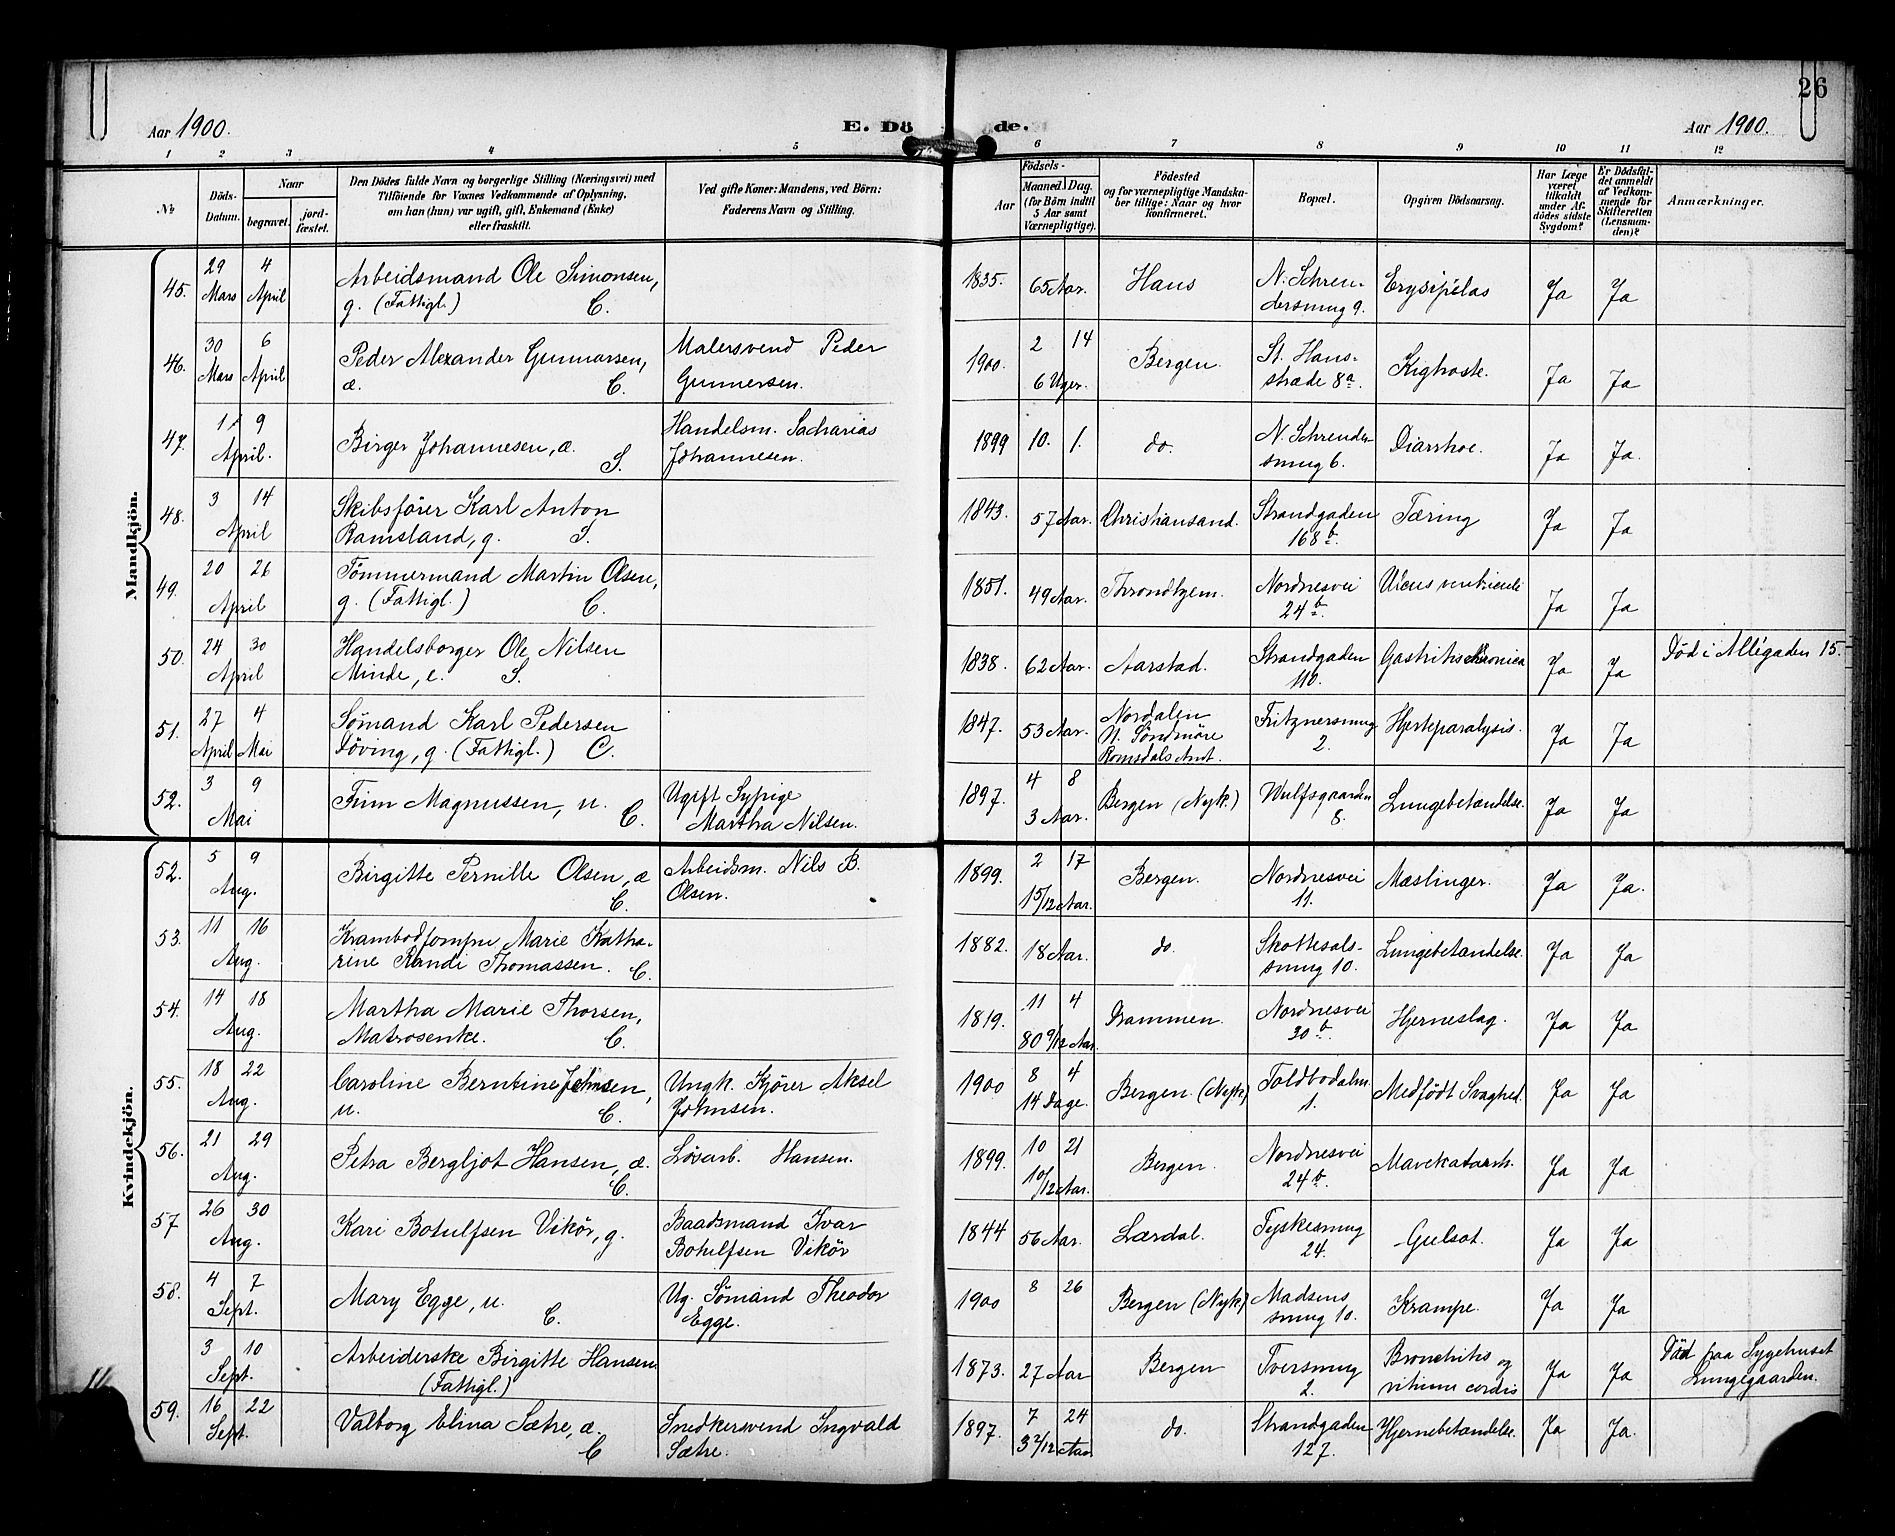 26
Aar 1900.
E. Dö
de.
Aar 1900.
1 2 3 4 5 6 7 8 9 10 11 12
No
Döds-Datum.
Naar
begravet.
jordfæstet.
Den Dödes fulde Navn og borgerlige Stilling (Næringsvei) med
Tilföiende for Voxnes Vedkommende af Oplysning,
om han (hun) var ugift, gift, Enkemand (Enke)
eller fraskilt.
Ved gifte Koner: Mandens, ved Börn:
Faderens Navn og Stilling.
Födsels-
Aar
Maaned. Dag.
(for Börn indtil
5 Aar samt
Værnepligtige).
Födested
og for værnepligtige Mandska-
ber tillige: Naar og hvor
konfirmeret.
Bopæl.
Opgiven Dödsaarsag.
Har Læge
været
tilkaldt
under Af-
dödes sidste
Sygdom?
Er Dödsfal-
det anmeldt
af Vedkom-
mende for
Skifteretten
(Lensman-
den)?
Anmærkninger.
Mandkjön.
45. 29 Mars 4 April Arbeidsmand Ole Simonsen, 1835. 65 Aar. Haus N. Schreu- Erysipelas Ja Ja
g. (Fattigl.) C. dersmug 9.
46. 30 Mars 6 April Peder Alexander Gunnarsen, Malersvend Peder 1900. 2 14 Bergen. St. Hans- Kighoste. Ja Ja
æ. C. Gunnersen. 6 Uger. stræde 8a.
47. 1 9 April. Birger Johannesen, æ. Handelsm. Sacharias 1899 10. 1. do. N. Schreuder- Diarrhoe. Ja Ja.
S. Johannesen. smug 6.
48. 3 14 April Skibsfører Karl Anton 1843. 57 Aar. Christiansand. Strandgaden Tæring Ja Ja
Ramsland, g. S. 168 b.
49. 20 26 April Tömmermand Martin Olsen, 1851. 49 Aar. Throndhjem. Nordnesvei Ulcus ventriculi Ja Ja
g. (Fattigl.) C. 24 b.
50. 24 30 April Handelsborger Ole Nilsen 1838. 62 Aar. Aarstad. Strandgaden Gastritis chronica Ja Ja Död i Allégaden 15.
Minde, e. S. 110.
51. 27 April 4 Mai Sömand Karl Pedersen 1847. 53 Aar. Nordalen Fritznersmug Hjerteparalysis. Ja Ja
Döving, g. (Fattigl.) C. N. Söndmöre 2.
Romsdals Amt.
52. 3 9 Mai Finn Magnussen, u. Ugift Sypige 1897. 4 8 Bergen (Nyk.) Wulfsgaarden Lungebetændelse. Ja Ja
C. Martha Nilsen. 3 Aar. 8.
Kvindekjön.
52. 5 9 Aug. Birgitte Pernille Olsen, æ Arbeidsm. Nils B. 1899. 2 17 Bergen. Nordnesvei Mæslinger. Ja Ja.
C. Olsen. 1 5/12 Aar. 11.
53. 11 16 Aug. Krambodjomfru Marie Katha- 1882. 18 Aar. do. Skottesals- Lungebetændelse. Ja Ja
rine Randi Thomassen. C. smug 10.
54. 14 18 Aug. Martha Marie Thorsen, 1819. 11 4 Drammen. Nordnesvei Hjerneslag. Ja Ja
Matrosenke. C. 80 9/12 Aar. 30 b.
55. 18 22 Aug. Caroline Berntine Johnsen, Ungk. Kjører Aksel 1900 8 4 Bergen. (Nyk) Toldbodalm. Medfödt Svaghed. Ja Ja
u. C. Johnsen. 14 Dage. 1.
56. 21 29 Aug. Petra Bergljot Hansen, æ. Løsarb. Hansen. 1899. 10 21 Bergen. Nordnesvei Mavekatarrh. Ja Ja
C. 10/12 Aar. 24 b.
57 26 30 Aug. Kari Botulfsen Vikör, g. Baadsmand Ivar 1844 56 Aar. Lærdal. Tyskesmug Gulsot. Ja Ja
Botulfsen Vikör 24.
58. 4 7 Sept. Mary Egge, u. Ug. Sömand Theodor 1900 8 26 Bergen (Nyk) Madsens Krampe. Ja Ja
C. Egge. smug 10.
11 3 10 Sept. Arbeiderske Birgitte Hansen 1873. 27 Aar Bergen Tversmug Bronchitis og Ja Ja Död paa Sygehuset
(Fattigl.) 2. vitium cordis Lungegaarden.
59. 16 22 Sept. Valborg Elina Sætre, æ. Snedkersvend Ingvald 1897. 7 24 do. Strandgaden Hjernebetændelse. Ja Ja.
C Sætre. 3 2/12 Aar 127.